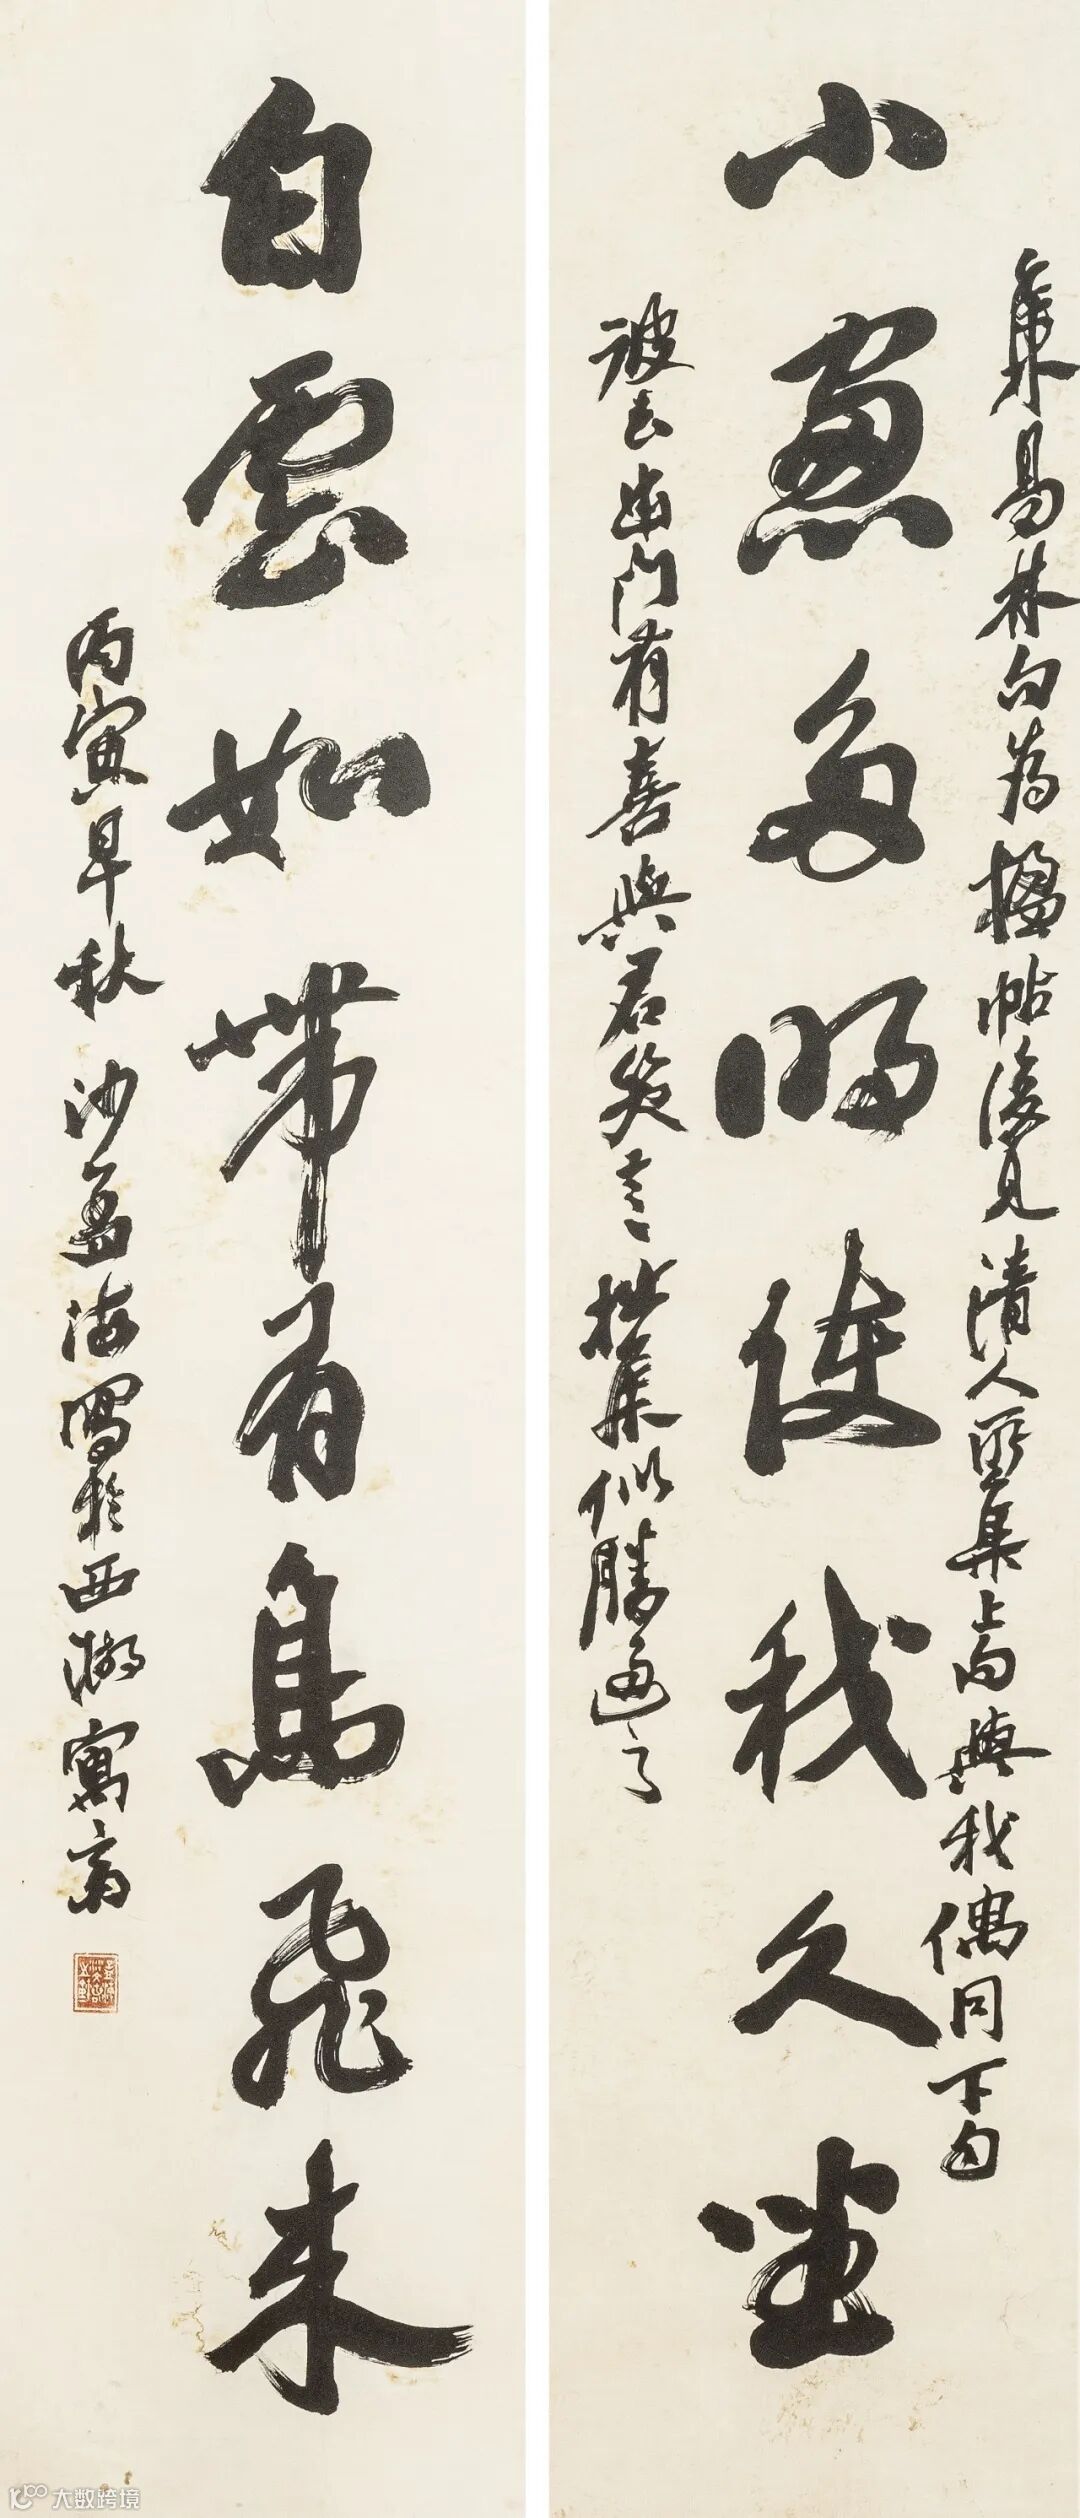 集易林句为楹帖后见清人所集上句與我偶同下句
小窗多明使我久坐
彼云出门有喜與君笑言拙集似勝
白雲如带有鳥飛来
丙寅早秋沙孟海寫於西湖寓齋
大数跨境